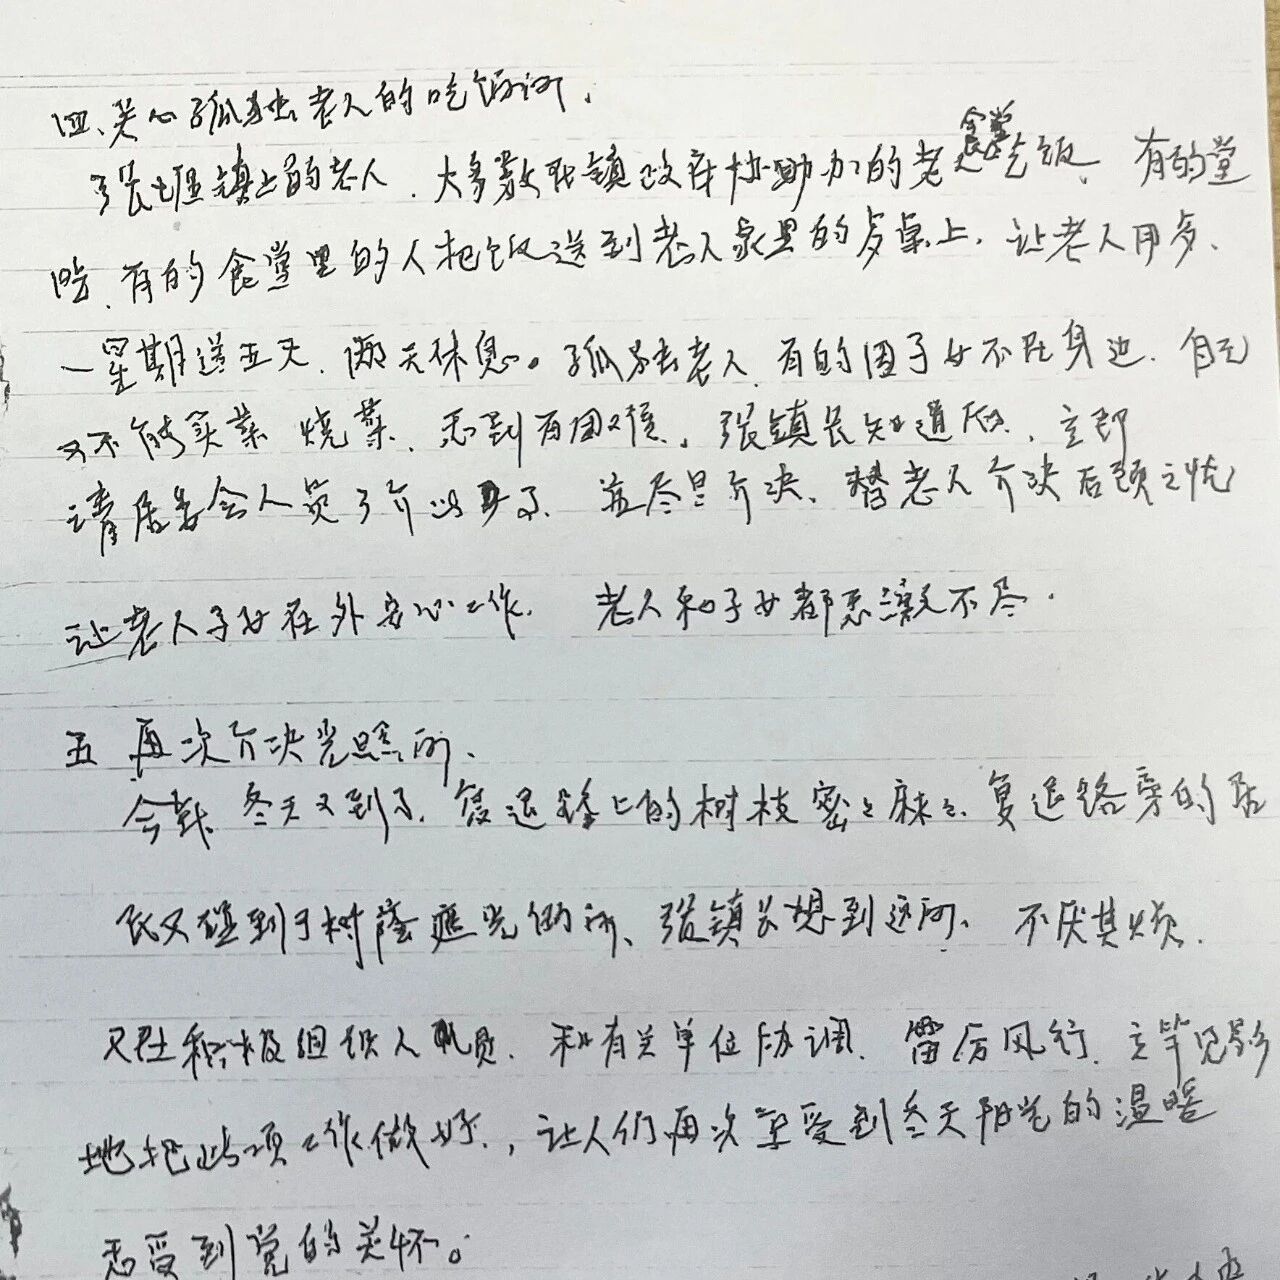 四、关心孤独老人的吃饭问.
张堰镇上的老人、大多数在镇政府协助办的老食堂吃饭、有的堂
吃、有的食堂里的人把饭送到老人家里的歺桌上、让老人用歺、
一星期送五天、俩天休息。孤独老人、有的因子女不在身边、自己
又不能买菜 烧菜、感到有困难、张镇长知道后、立即
请居委会人员了介此事、并尽早介决、替老人介决后顾之忧
让老人子女在外安心工作、老人和子女都感激不尽.
五 再次介决光照问、
今载 冬天又到了、复退路上的树枝密々麻々、复退路旁的居
民又碰到了树荫遮光的问、张镇长想到这问、不厌其烦、
又在积极组织人员、和有关单位协调、雷厉风行、立竿见影
地把此项工作做好.,让人们再次享受到冬天阳光的温暖
感受到党的关怀。